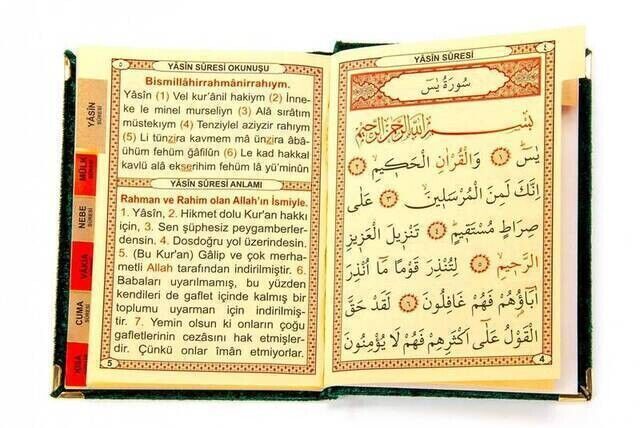 YÂSİN SÛRESİ
٤
سُورَةُ يٰسٓ
بِسْمِ اللّٰهِ الرَّحْمٰنِ الرَّحِيمِ
يٰسٓ ﴿١﴾ وَالْقُرْاٰنِ الْحَكِيمِ ﴿٢﴾
اِنَّكَ لَمِنَ الْمُرْسَلِينَ ﴿٣﴾ عَلٰى
صِرَاطٍ مُسْتَقِيمٍ ﴿٤﴾ تَنْزِيلَ الْعَزِيزِ
الرَّحِيمِ ﴿٥﴾ لِتُنْذِرَ قَوْمًا مَٓا اُنْذِرَ
اٰبَٓاؤُ۬هُمْ فَهُمْ غَافِلُونَ ﴿٦﴾ لَقَدْ حَقَّ
الْقَوْلُ عَلٰٓى اَكْثَرِهِمْ فَهُمْ لَا يُؤْمِنُونَ
4
٥
YÂSİN SÛRESİ OKUNUŞU
Bismillâhirrahmânirrahıym.
Yâsîn (1) Vel kur'ânil hakiym (2) İnne-
ke le minel murseliyn (3) Alâ sırâtım
müstekıym (4) Tenziylel aziyzir rahıym
(5) Li tünzira kavmem mâ ünzira âbâ-
ühüm fehüm ğâfilûn (6) Le kad hakkal
kavlü alâ ekserihim fehüm lâ yü'minûn
YÂSİN SÛRESİ ANLAMI
Rahman ve Rahim olan Allah'ın İsmiyle.
1. Yâsîn, 2. Hikmet dolu Kur'an hakkı
için, 3. Sen şüphesiz peygamberler-
densin. 4. Dosdoğru yol üzerindesin.
5. (Bu Kur'an) Gâlip ve çok merha-
metli Allah tarafından indirilmiştir. 6.
Babaları uyarılmamış, bu yüzden
kendileri de gaflet içinde kalmış bir
toplumu uyarman için indirilmiş-
tir. 7. Yemin olsun ki onların çoğu
gafletlerinin cezasını hak etmişler-
dir. Çünkü onlar îmân etmiyorlar.
5
YÂSİN
SÛRESİ
MÜLK
SÛRESİ
NEBE
SÛRESİ
VÂKIA
SÛRESİ
CUMA
SÛRESİ